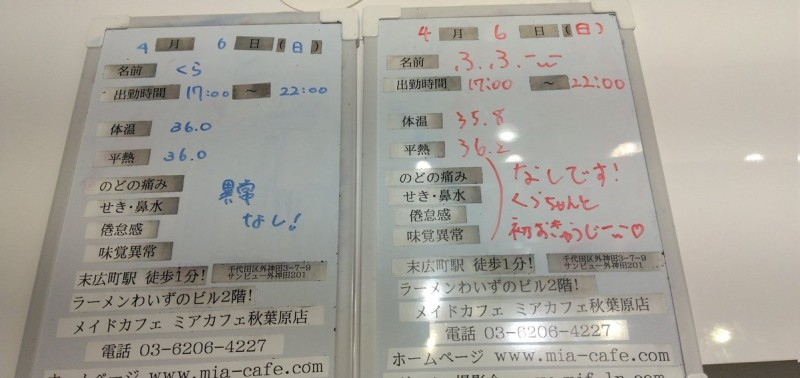 4 月 6 日 (日)
名前 くら
出勤時間 17:00 ~ 22:00
体温 36.0
平熱 36.0
のどの痛み
せき・鼻水
倦怠感
味覚異常
異常
なし!
末広町駅 徒歩1分!
千代田区外神田3-7-9
サンビュー外神田201
ラーメンわいずのビル2階!
メイドカフェ ミアカフェ秋葉原店
電話 03-6206-4227
ホームページ www.mia-cafe.com
4 月 6 日 (日)
名前 ふ、ふ、
出勤時間 17:00 ~ 22:00
体温 35.8
平熱 36.2
のどの痛み
せき・鼻水
倦怠感
味覚異常
なしです!
くらちゃんと
初おきゅうじ〜♡
末広町駅 徒歩1分!
千代田区外神田3-7-9
サンビュー外神田201
ラーメンわいずのビル2階!
メイドカフェ ミアカフェ秋葉原店
電話 03-6206-4227
ホームページ www.mia-cafe.com